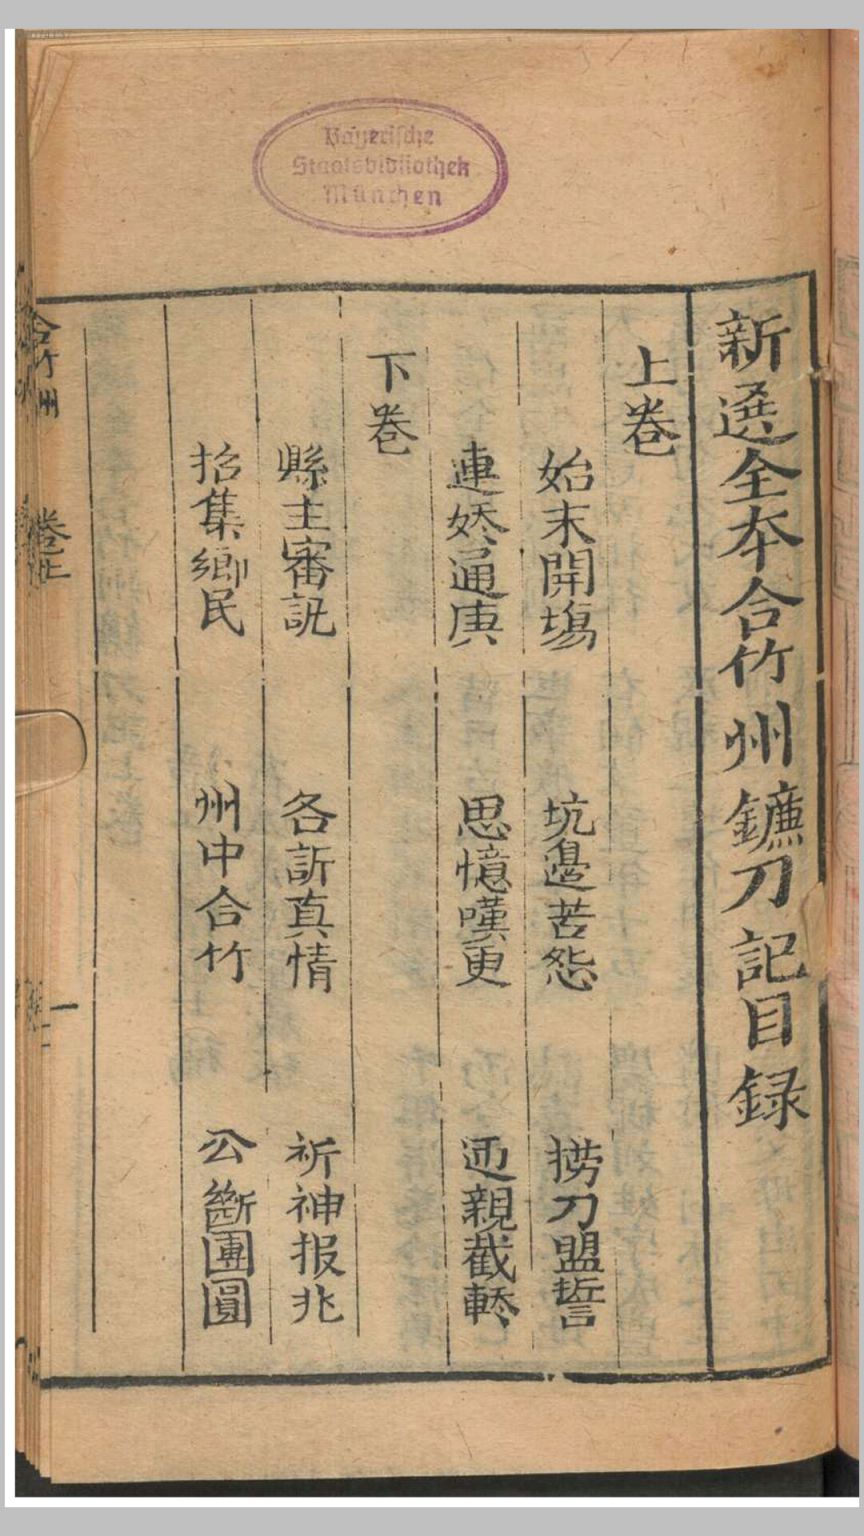 Bayerische
Staatsbibliothek
München
新選全本合竹州鑣刀記目録
上卷
始末開塲 坑邉苦怨 撈刀盟誓
連妖通庚 思憶嘆更 迊親截轎
下卷
縣主審訊 各訴真情 祈神报兆
招集鄉民 州中合竹 公斷團圓
合竹州 卷上 一